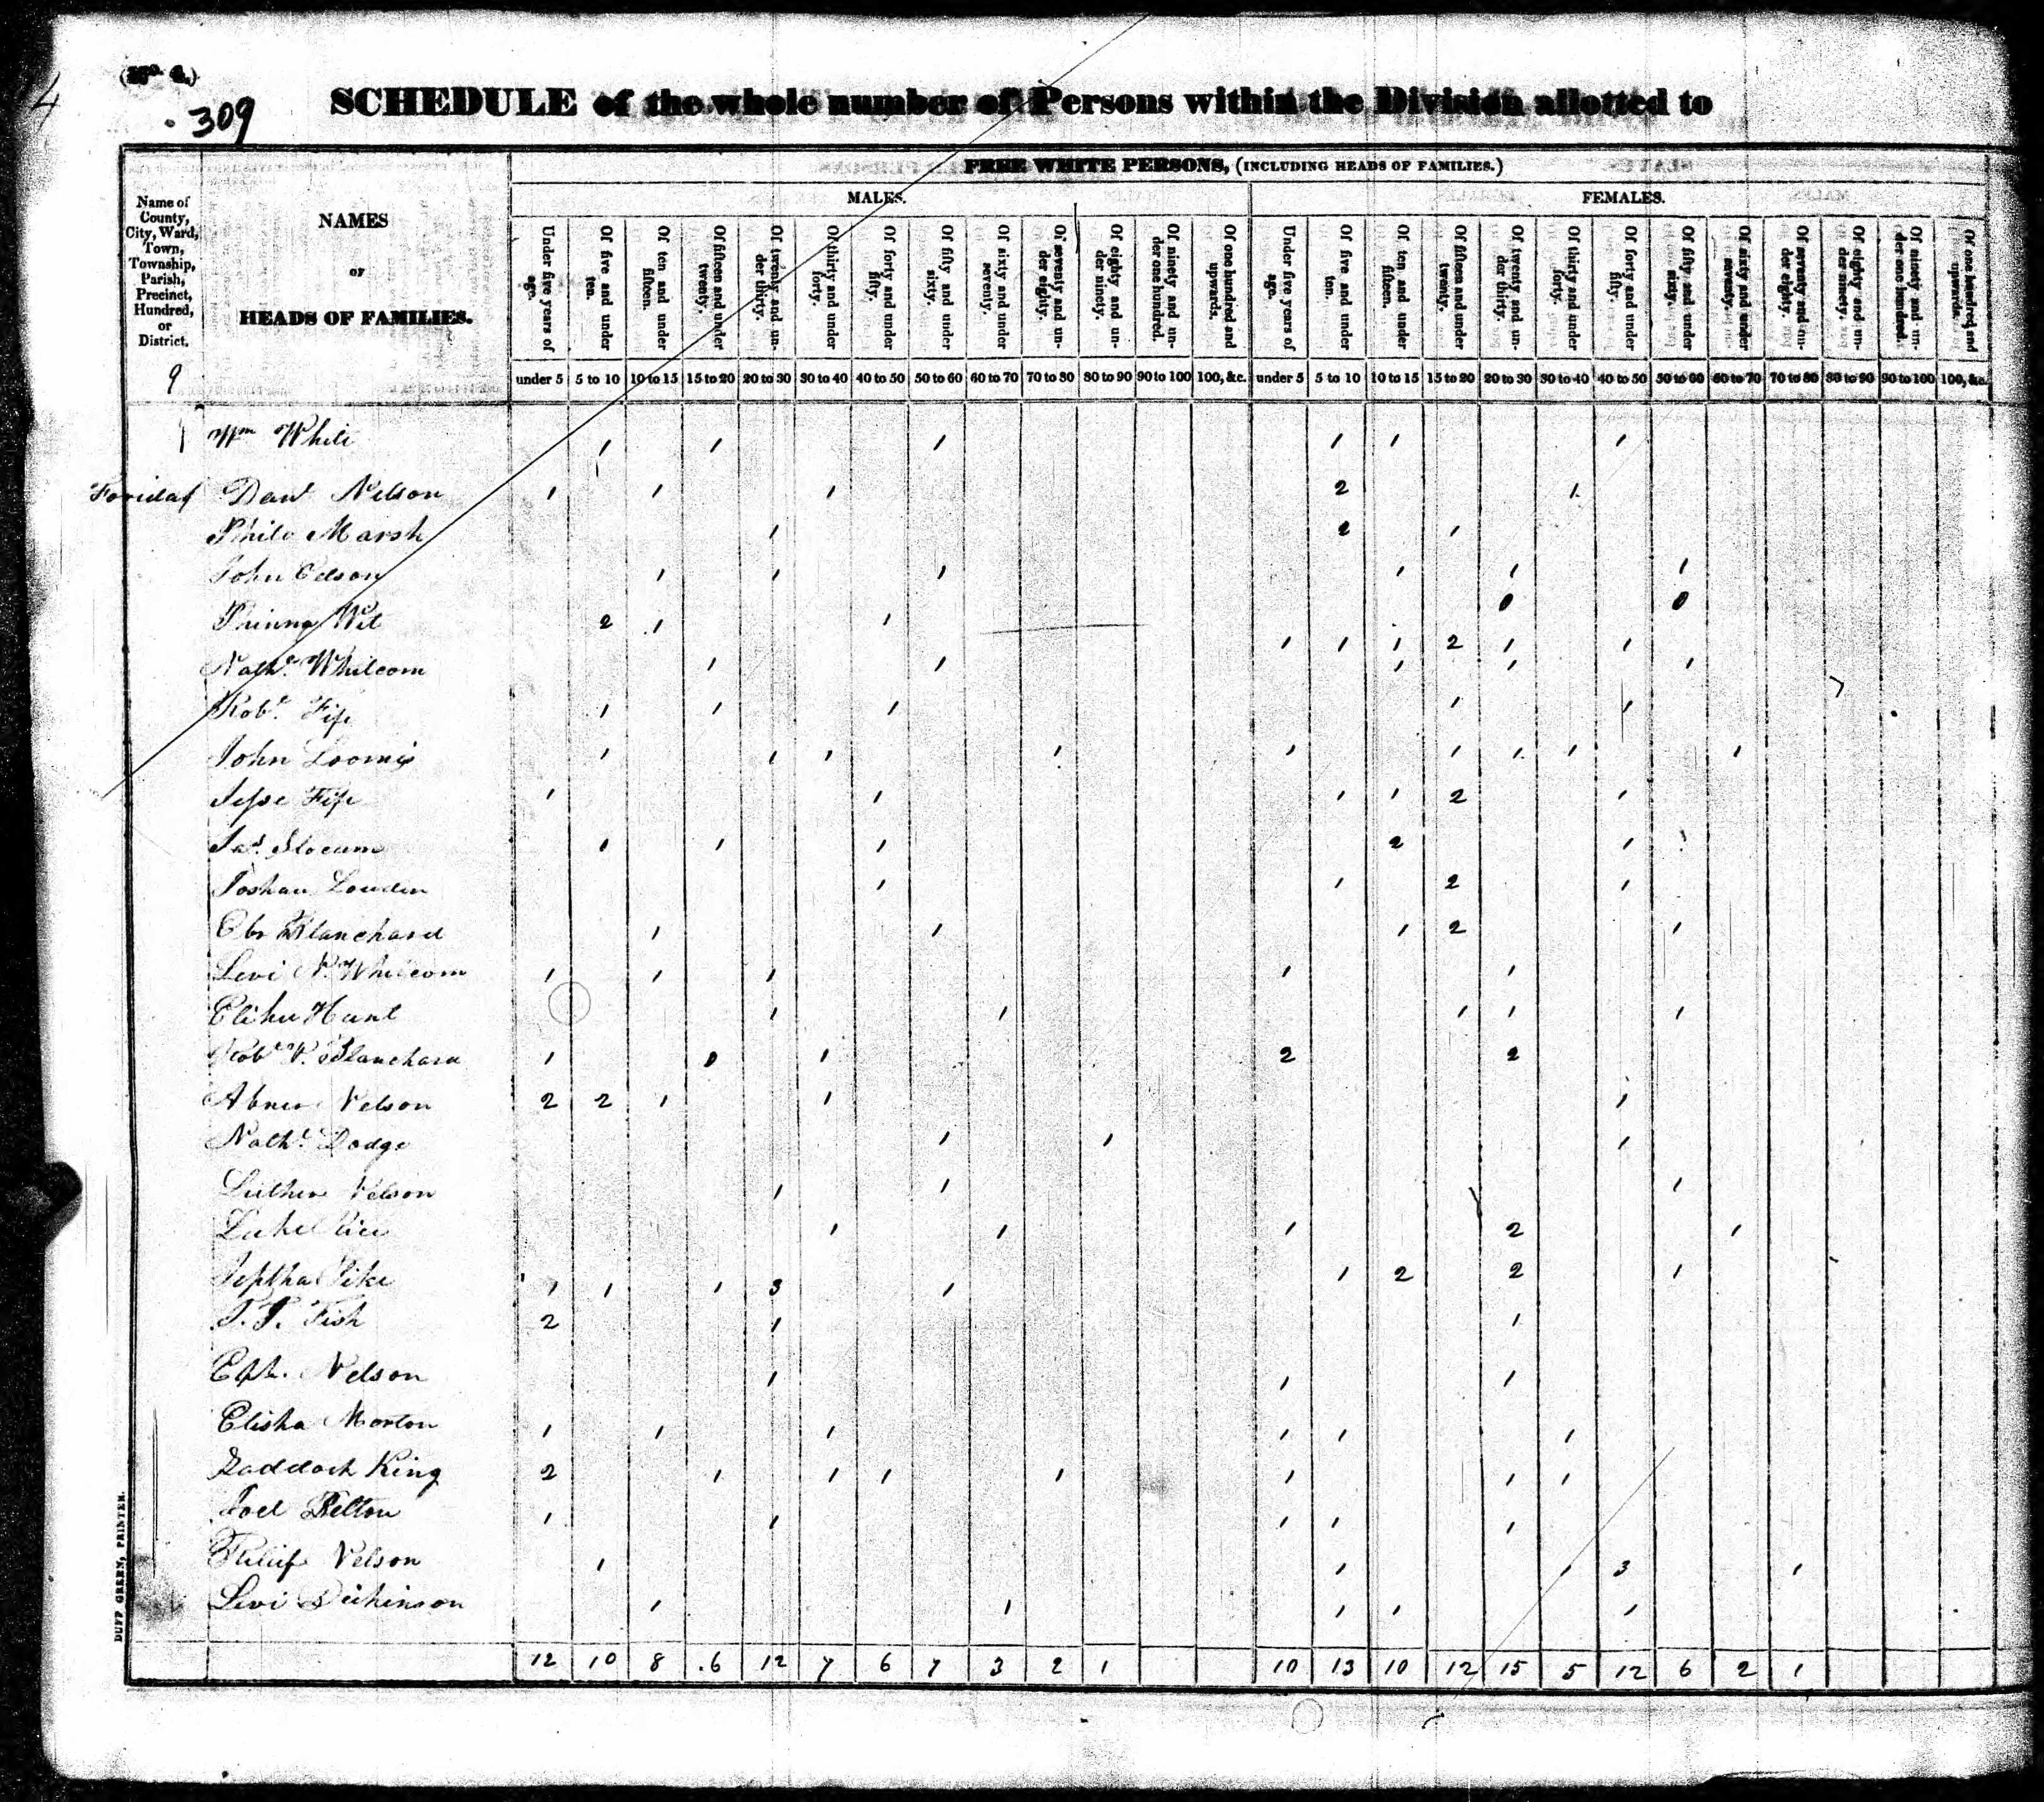 (No. 4.)
309
SCHEDULE of the whole number of Persons within the Division allotted to
FREE WHITE PERSONS, (INCLUDING HEADS OF FAMILIES.)
MALES. FEMALES.
Name of County, City, Ward, Town, Township, Parish, Precinct, Hundred, or District.
NAMES OF HEADS OF FAMILIES.
Under five years of age. Of five and under ten. Of ten and under fifteen. Of fifteen and under twenty. Of twenty and under thirty. Of thirty and under forty. Of forty and under fifty. Of fifty and under sixty. Of sixty and under seventy. Of seventy and under eighty. Of eighty and under ninety. Of ninety and under one hundred. Of one hundred and upwards. Under five years of age. Of five and under ten. Of ten and under fifteen. Of fifteen and under twenty. Of twenty and under thirty. Of thirty and under forty. Of forty and under fifty. Of fifty and under sixty. Of sixty and under seventy. Of seventy and under eighty. Of eighty and under ninety. Of ninety and under one hundred. Of one hundred and upwards.
9 under 5 5 to 10 10 to 15 15 to 20 20 to 30 30 to 40 40 to 50 50 to 60 60 to 70 70 to 80 80 to 90 90 to 100 100, &c. under 5 5 to 10 10 to 15 15 to 20 20 to 30 30 to 40 40 to 50 50 to 60 60 to 70 70 to 80 80 to 90 90 to 100 100, &c.
Wm White 1 1 1 1 1 1
Danl Nelson 1 1 1 2 1
Philo Marsh 1 2 1
John Edson 1 1 1 1 1 1
Wit 2 1 1 0 0
1 1 1 2 1 1
Nathl Whitcom 1 1 1 1 1
Robt Fife 1 1 1 1 1
John Loomis 1 1 1 1 1 1 1 1 1
Jesse Fife 1 1 1 1 2 1
Jas Slocum 1 1 1 2 1
Louden 1 1 2 1
Ebr Blanchard 1 1 1 2 1
Levi N. Whitcom 1 1 1 1 1
Elihu Hunt 1 1 1 1 1
Robt P. Blanchard 1 0 1 2 2
Abner Nelson 2 2 1 1 1
Nathl Dodge 1 1 1
Luther Nelson 1 1 1
Rice 1 1 1 2 1
Jeptha Pike 1 1 1 3 1 1 2 2 1
T. T. Fish 2 1 1
Eph. Nelson 1 1 1
Elisha Morton 1 1 1 1 1 1
Zaddock King 2 1 1 1 1 1 1 1
Joel Pelton 1 1 1 1 1
Nelson 1 1 1 3 1
Levi Dickinson 1 1 1 1 1
12 10 8 6 12 7 6 7 3 2 1 10 13 10 12 15 5 12 6 2 1
DUFF GREEN, PRINTER.